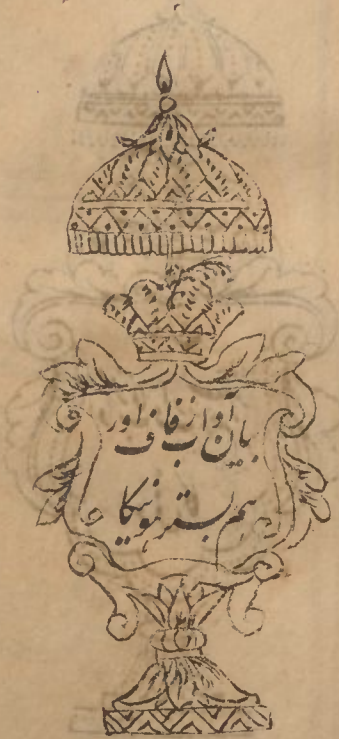 بیان آداب زفاف اور
ہم بستر ہونیکا